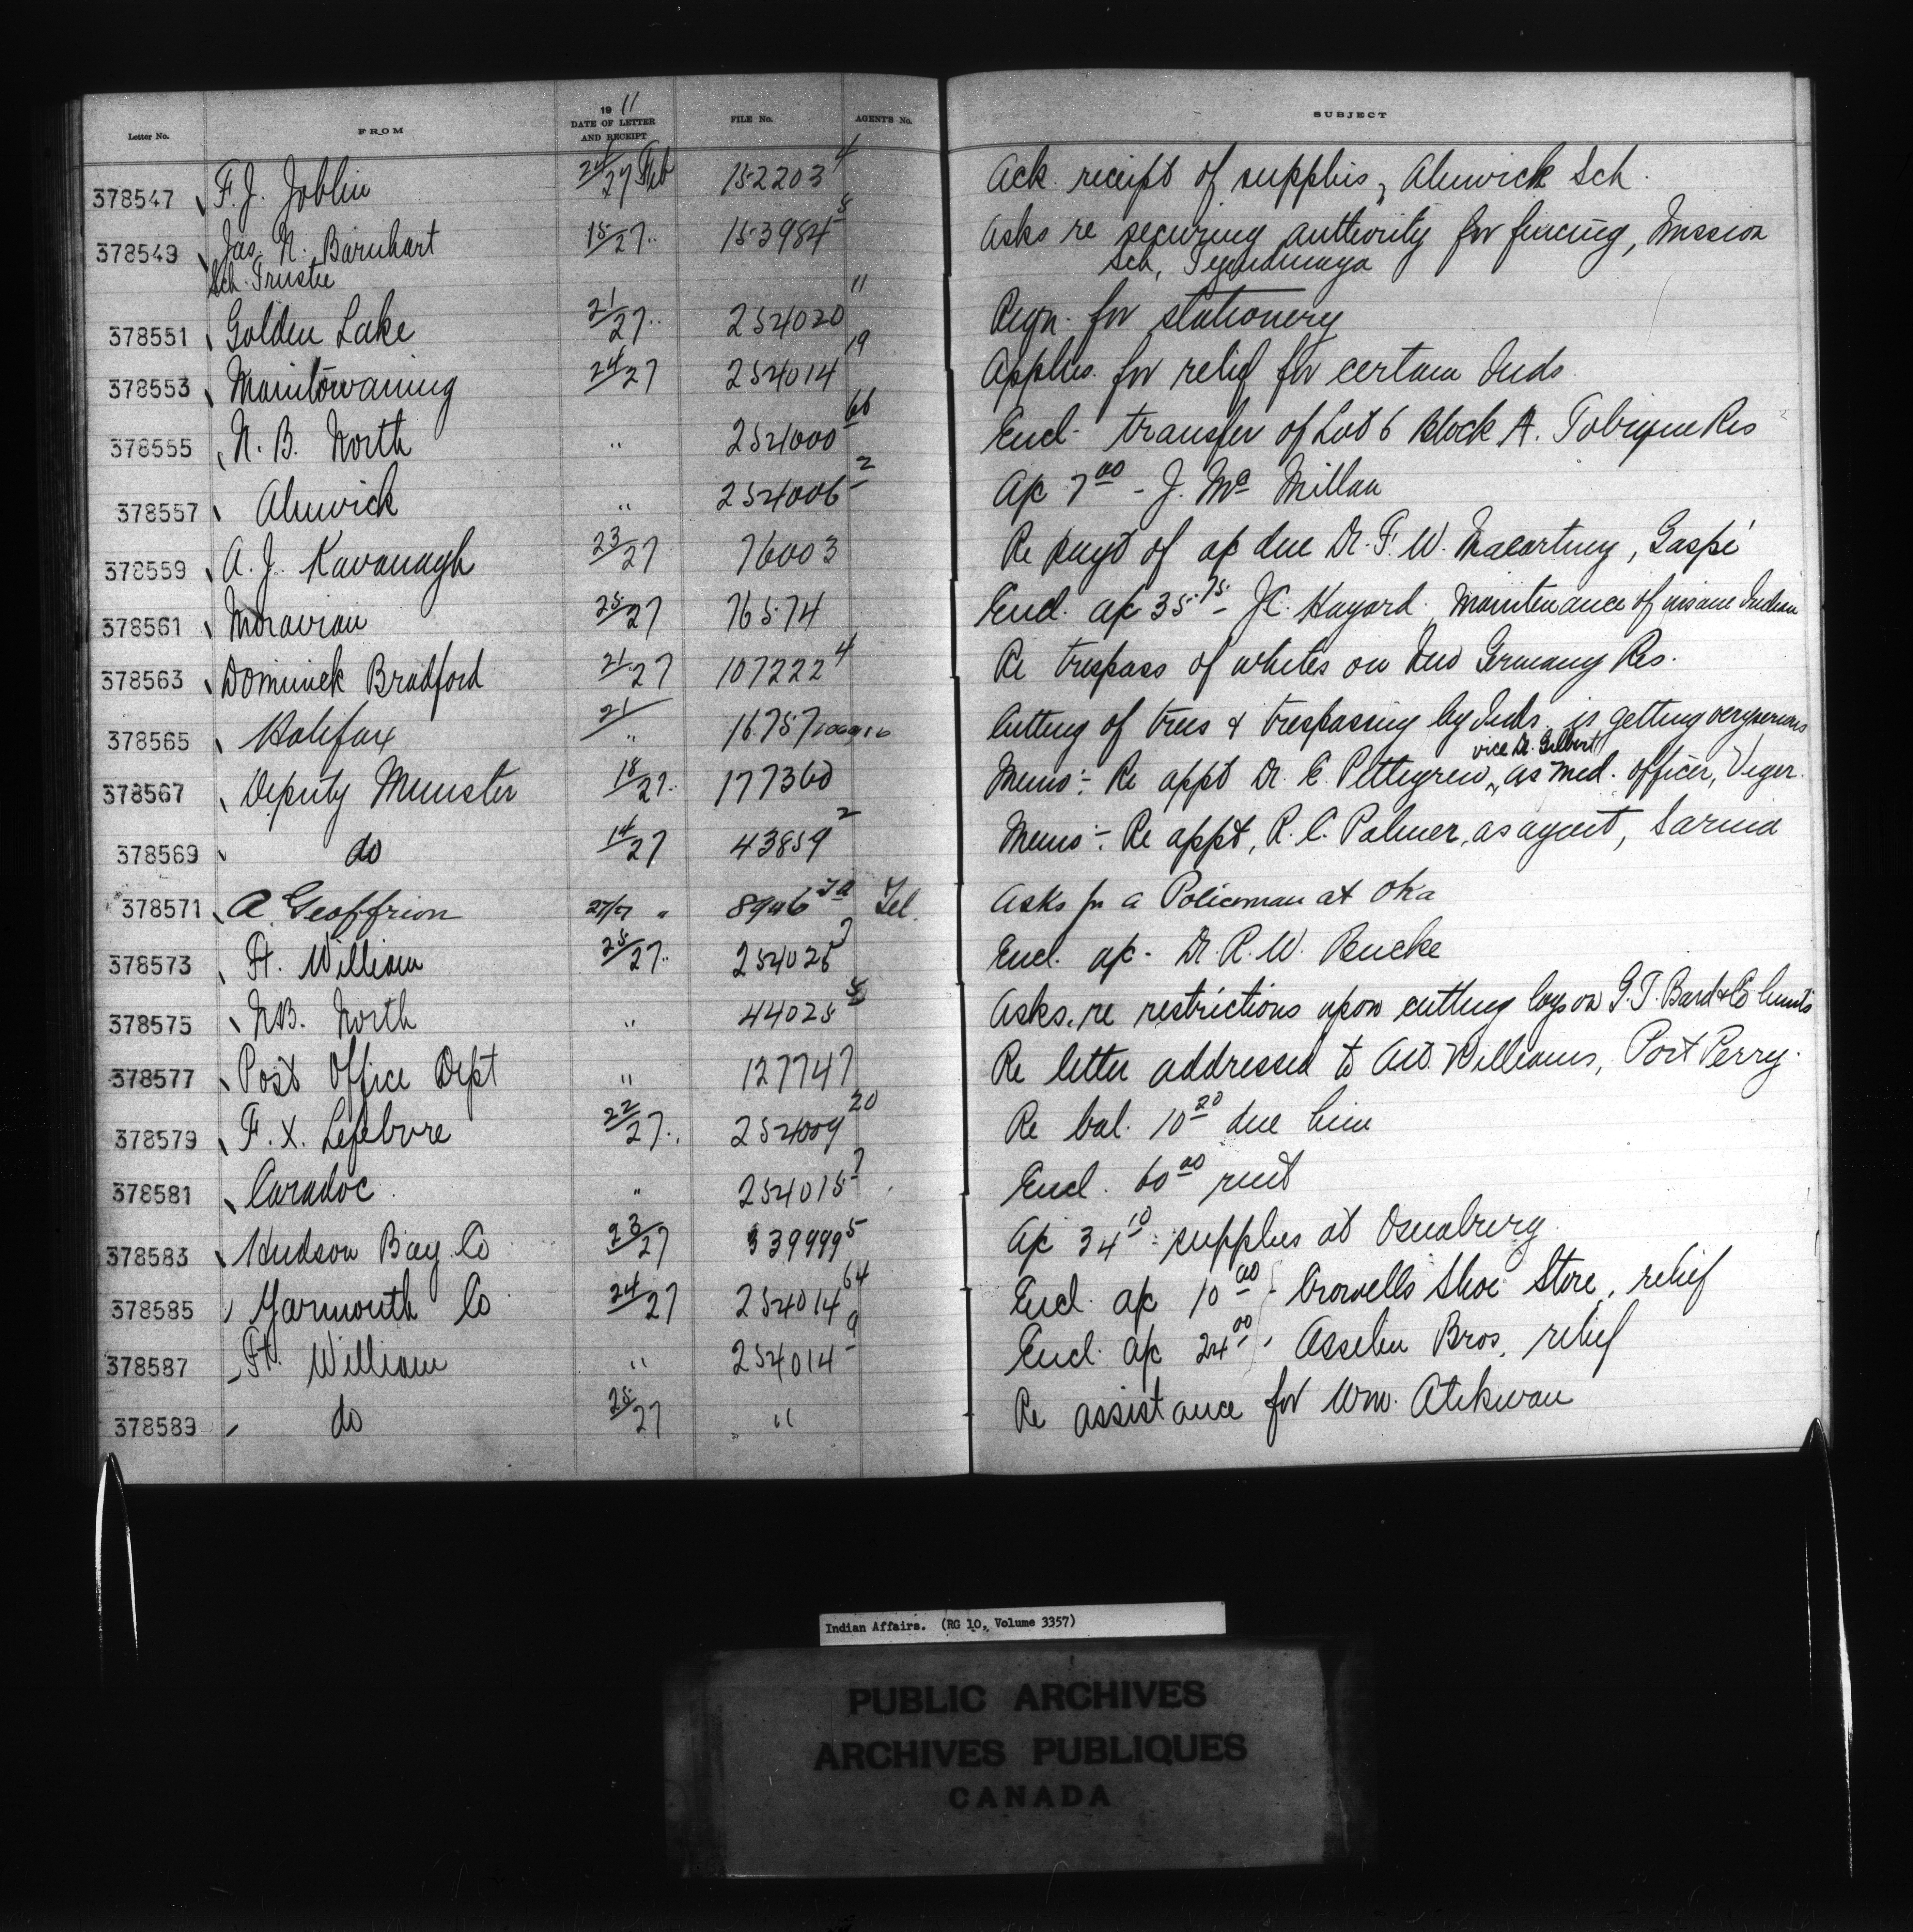 Letter No. FROM 19 11 DATE OF LETTER AND RECEIPT FILE No. AGENTS No. SUBJECT
378547 F. J. Joblin 24/27 Feb 152203 4 Ack. receipt of supplies, Alnwick Sch.
378549 Jas. N. Barnhart 15/27 " 153984 8 Asks re securing authority for fencing, Mission
Sch. Trustee Sch, Tyendinaga
378551 Golden Lake 21/27 " 254020 11 Reqn. for stationery
378553 Manitowaning 24/27 254014 19 Applies. for relief for certain Inds.
378555 N. B. North " 254000 66 Encl. transfer of Lot 6 Block A. Tobique Res
378557 Alnwick " 254006 2 A/c 7 00 - J. Mc Millan
378559 A. J. Kavanagh 23/27 76003 Re payt of a/c due Dr. F. W. Macartney, Gaspé
378561 Moravian 25/27 76574 Encl. a/c 35.75 - J.C. Maintenance of insane Indian
378563 Dominick Bradford 21/27 107222 4 Re trespass of whites on New Germany Res.
378565 Halifax 21/" 16757 Cutting of trees & trespassing by Inds. is getting very serious
378567 Deputy Minister 18/27 " 177360 Memo :- Re appt Dr. E. Pettigrew, vice Dr. Gilbert as med. officer, Viger.
378569 do 14/27 43859 2 Memo :- Re appt, R. C. Palmer, as agent, Sarnia
378571 A Geoffrion 27/27 " 8946 Tel. Asks for a Policeman at Oka
378573 Ft. William 25/27 " 254025 7 Encl. a/c - Dr. R. W. Bucke
378575 N.B. North " 44025 Asks. re restrictions upon cutting logs on limits
378577 Post Office Dept " 127747 Re letter addressed to Williams, Port Perry.
378579 F. X. Lefebvre 22/27 " 254009 20 Re bal. 10 20 due him
378581 Caradoc " 254015 7 Encl. 60 00 rent
378583 Hudson Bay Co 23/27 339999 5 A/c 34 10 - supplies at Osnaburg
378585 Yarmouth Co 24/27 254014 64 Encl. a/c 10 00 Crowells Shoe Store, relief
378587 Ft. William " 254014 9 Encl. a/c 24 00 Asselin Bros, relief
378589 do 25/27 " Re assistance for Wm. Atikwan
Indian Affairs. (RG 10, Volume 3357)
PUBLIC ARCHIVES
ARCHIVES PUBLIQUES
CANADA